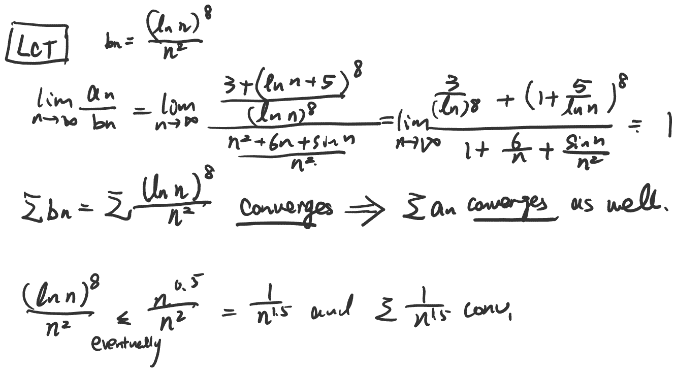 LCT bn = (ln n)^8 / n^2
lim n→∞ an/bn = lim n→∞ ((3+(ln n+5)^8)/(ln n)^8) / ((n^2+6n+sin n)/n^2) = lim n→∞ (3/(ln)^8 + (1+5/ln n)^8) / (1 + 6/n + sin n/n^2) = 1
Σ bn = Σ (ln n)^8 / n^2 converges ⇒ Σ an converges as well.
(ln n)^8 / n^2 ≤ eventually n^0.5 / n^2 = 1/n^1.5 and Σ 1/n^1.5 conv.